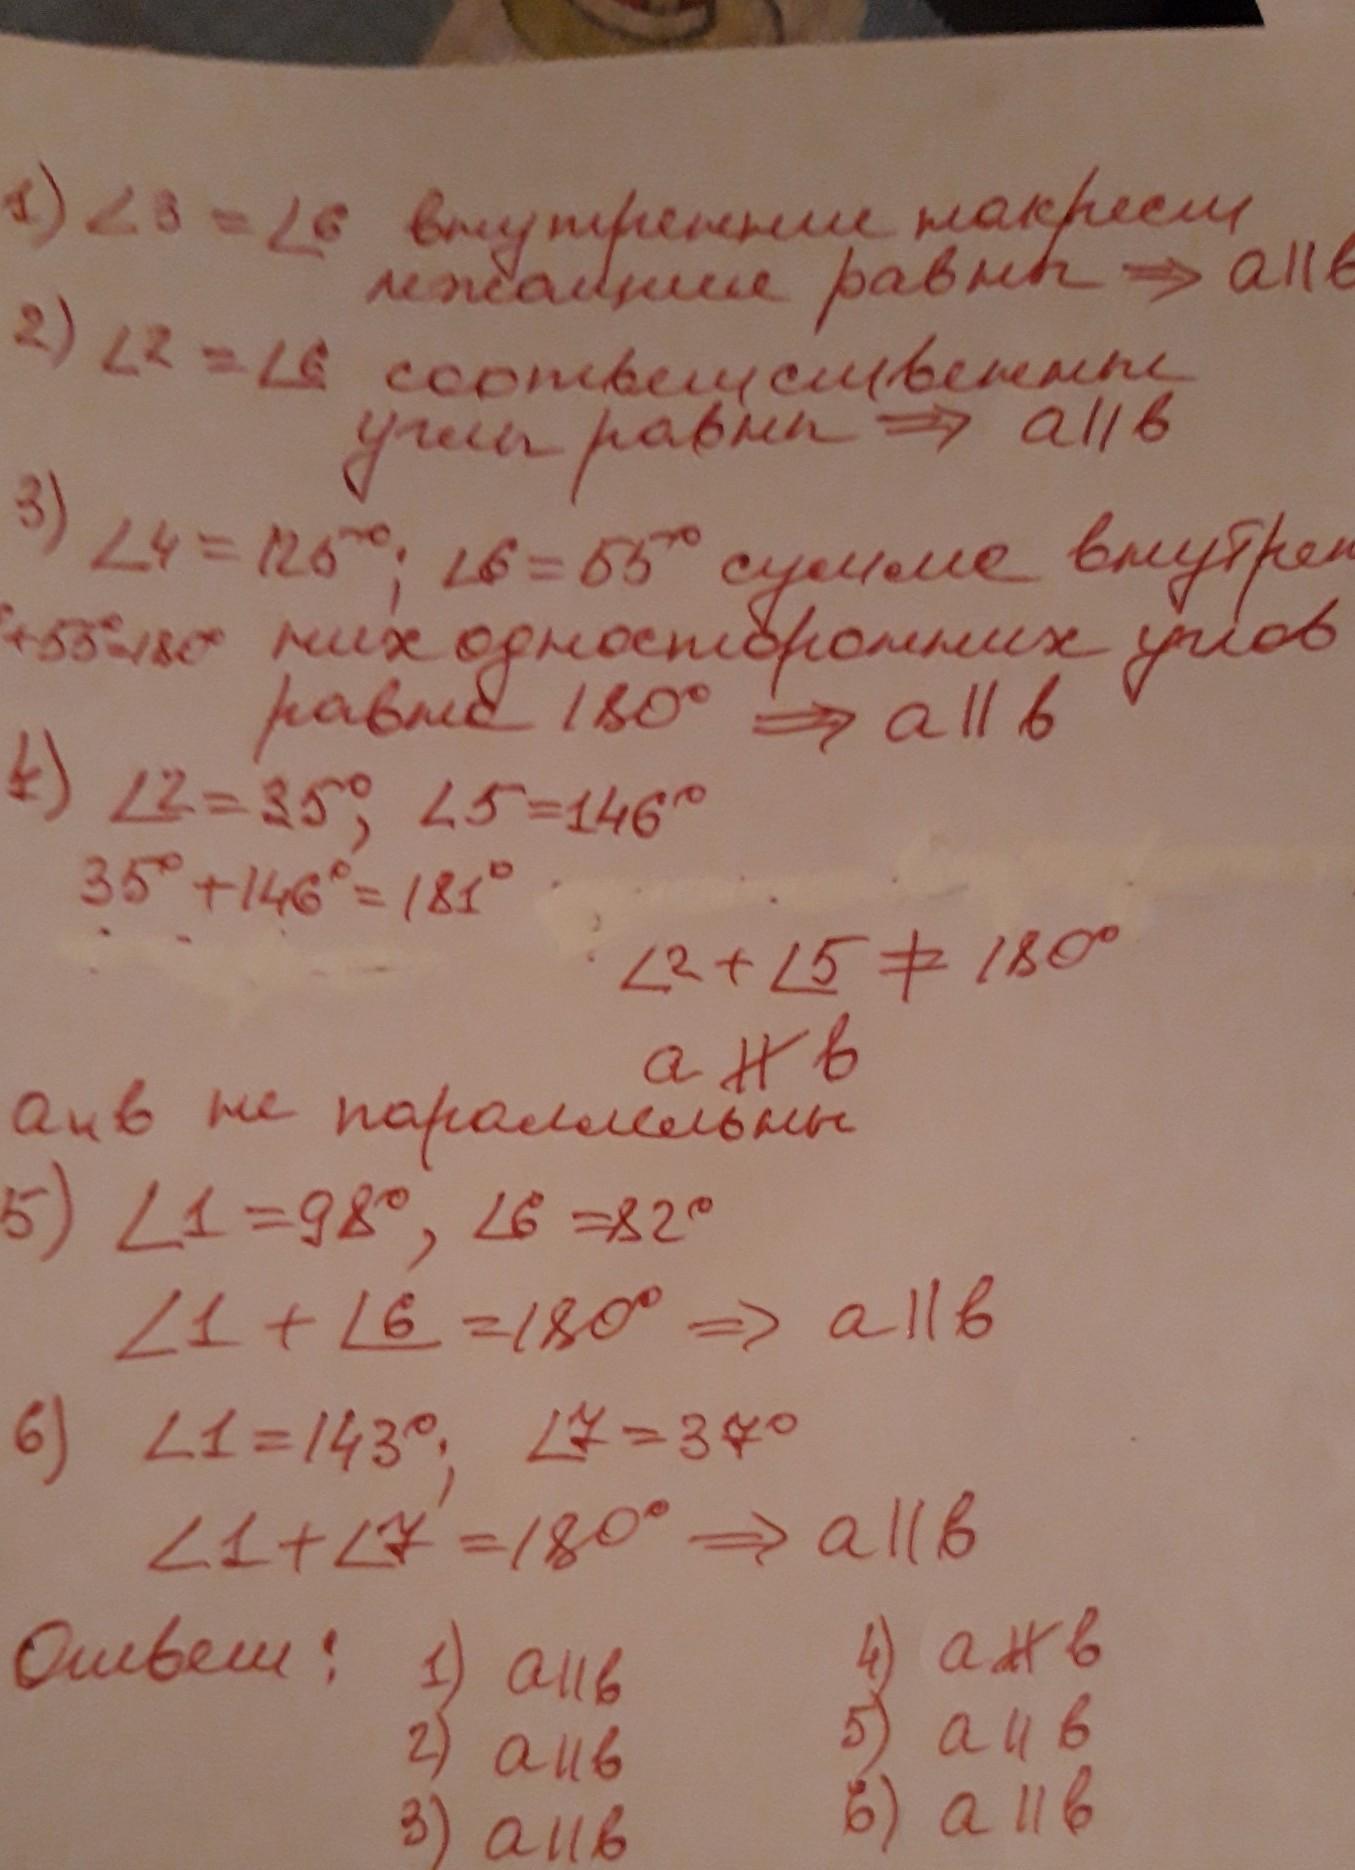 1) ∠3 = ∠6 внутренние накрест
лежащие равны ⇒ a||b
2) ∠2 = ∠6 соответственные
углы равны ⇒ a||b
3) ∠4 = 125°; ∠6 = 55° сумма внутрен
°+55°=180° них односторонних углов
равна 180° ⇒ a||b
4) ∠2 = 35°; ∠5 = 146°
35° + 146° = 181°
∠2 + ∠5 ≠ 180°
a ∦ b
a и b не параллельны
5) ∠1 = 98°, ∠6 = 82°
∠1 + ∠6 = 180° ⇒ a||b
6) ∠1 = 143°; ∠7 = 37°
∠1 + ∠7 = 180° ⇒ a||b
Ответ: 1) a||b 4) a ∦ b
2) a||b 5) a||b
3) a||b 6) a||b